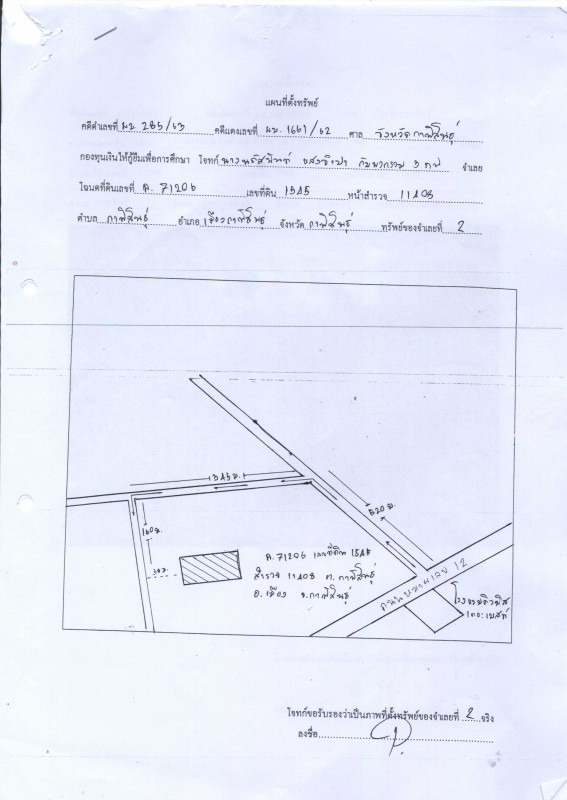 แผนที่ตั้งทรัพย์
คดีดำเลขที่ ผบ. 285/63 คดีแดงเลขที่ ผบ. 1661/62 ศาล จังหวัดกาฬสินธุ์
กองทุนเงินให้กู้ยืมเพื่อการศึกษา โจทก์ นาง กับพวกรวม 3 คน จำเลย
โฉนดที่ดินเลขที่ ต. 71206 เลขที่ดิน 1545 หน้าสำรวจ 11408
ตำบล กาฬสินธุ์ อำเภอ เมืองกาฬสินธุ์ จังหวัด กาฬสินธุ์ ทรัพย์ของจำเลยที่ 2
345 ม.
520 ม.
160 ม.
ต. 71206 เลขที่ดิน 1545
สำรวจ 11408 ต. กาฬสินธุ์
อ. เมือง จ. กาฬสินธุ์
ถนนหมายเลข 12
โจทก์ขอรับรองว่าเป็นภาพที่ตั้งทรัพย์ของจำเลยที่ 2 จริง
ลงชื่อ